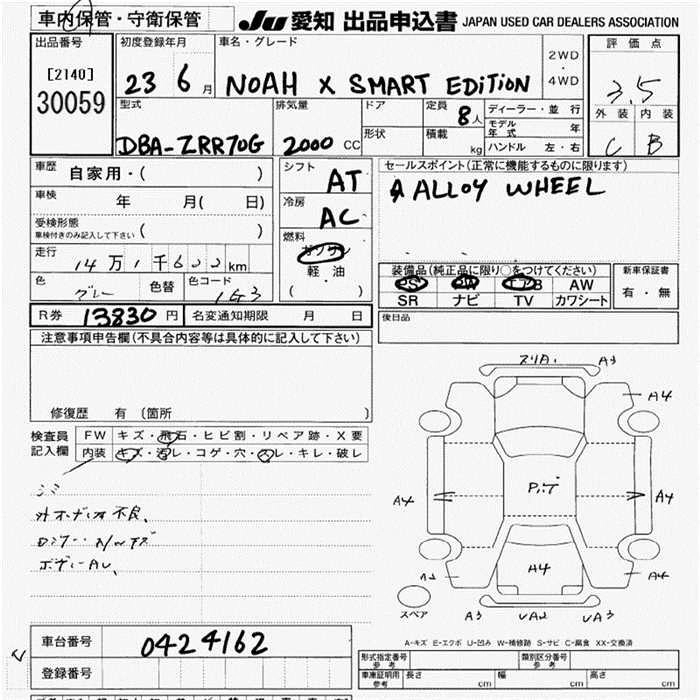 車内保管・守衛保管 JU 愛知 出品申込書 JAPAN USED CAR DEALERS ASSOCIATION
出品番号 初度登録年月 車名・グレード 評価点
[2140] 30059 23 6月 NOAH X SMART EDITION 2WD・4WD 3.5
型式 排気量 ドア 定員 ディーラー・並行 外装 内装
DBA-ZRR70G 2000 CC 8人 モデル年式 年 C B
形状 積載 kg ハンドル 左・右
車歴 自家用・( ) シフト AT セールスポイント(正常に機能するものに限ります)
車検 年 月( 日) 冷房 AC ALLOY WHEEL
受検形態 ( )
車検付きのみ記入して下さい
燃料 ガソリン
軽油
( )
走行 14万1千600km
装備品(純正品に限り○をつけてください) 新車保証書
色 グレー 色替 色コード 1G3
PS PW エアB AW 有・無
SR ナビ TV カワシート
R券 13830円 名変通知期限 月 日 後日品
注意事項申告欄(不具合内容等は具体的に記入して下さい)
修復歴 有 (箇所 )
検査員記入欄 FW キズ・飛石・ヒビ割・リペア跡・X要
内装 キズ・汚レ・コゲ・穴・スレ・キレ・破レ
シミ
不良、
A3
A4
A4 A4
A4 A4
スペア A3 UA2 UA3
A-キズ E-エクボ U-凹み W-補修跡 S-サビ C-腐食 XX-交換済
車台番号 0424162
型式指定番号 参考 類別区分番号 参考
登録番号 車庫証明用 参考 長さ cm 幅 cm 高さ cm